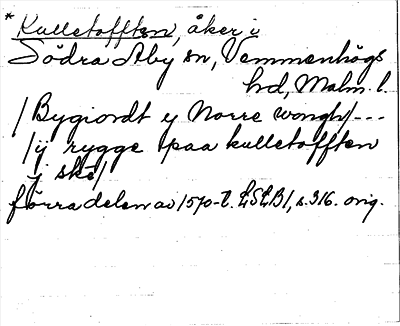 * Kulletofften, åker i
Södra Åby sn, Vemmenhögs
hd, Malm. l.
/Bygiordt y Norre wongh/---
/ij rygge paa kulletofften
y ske/
förra delen av 1570-t. LSLB1, s. 316. orig.